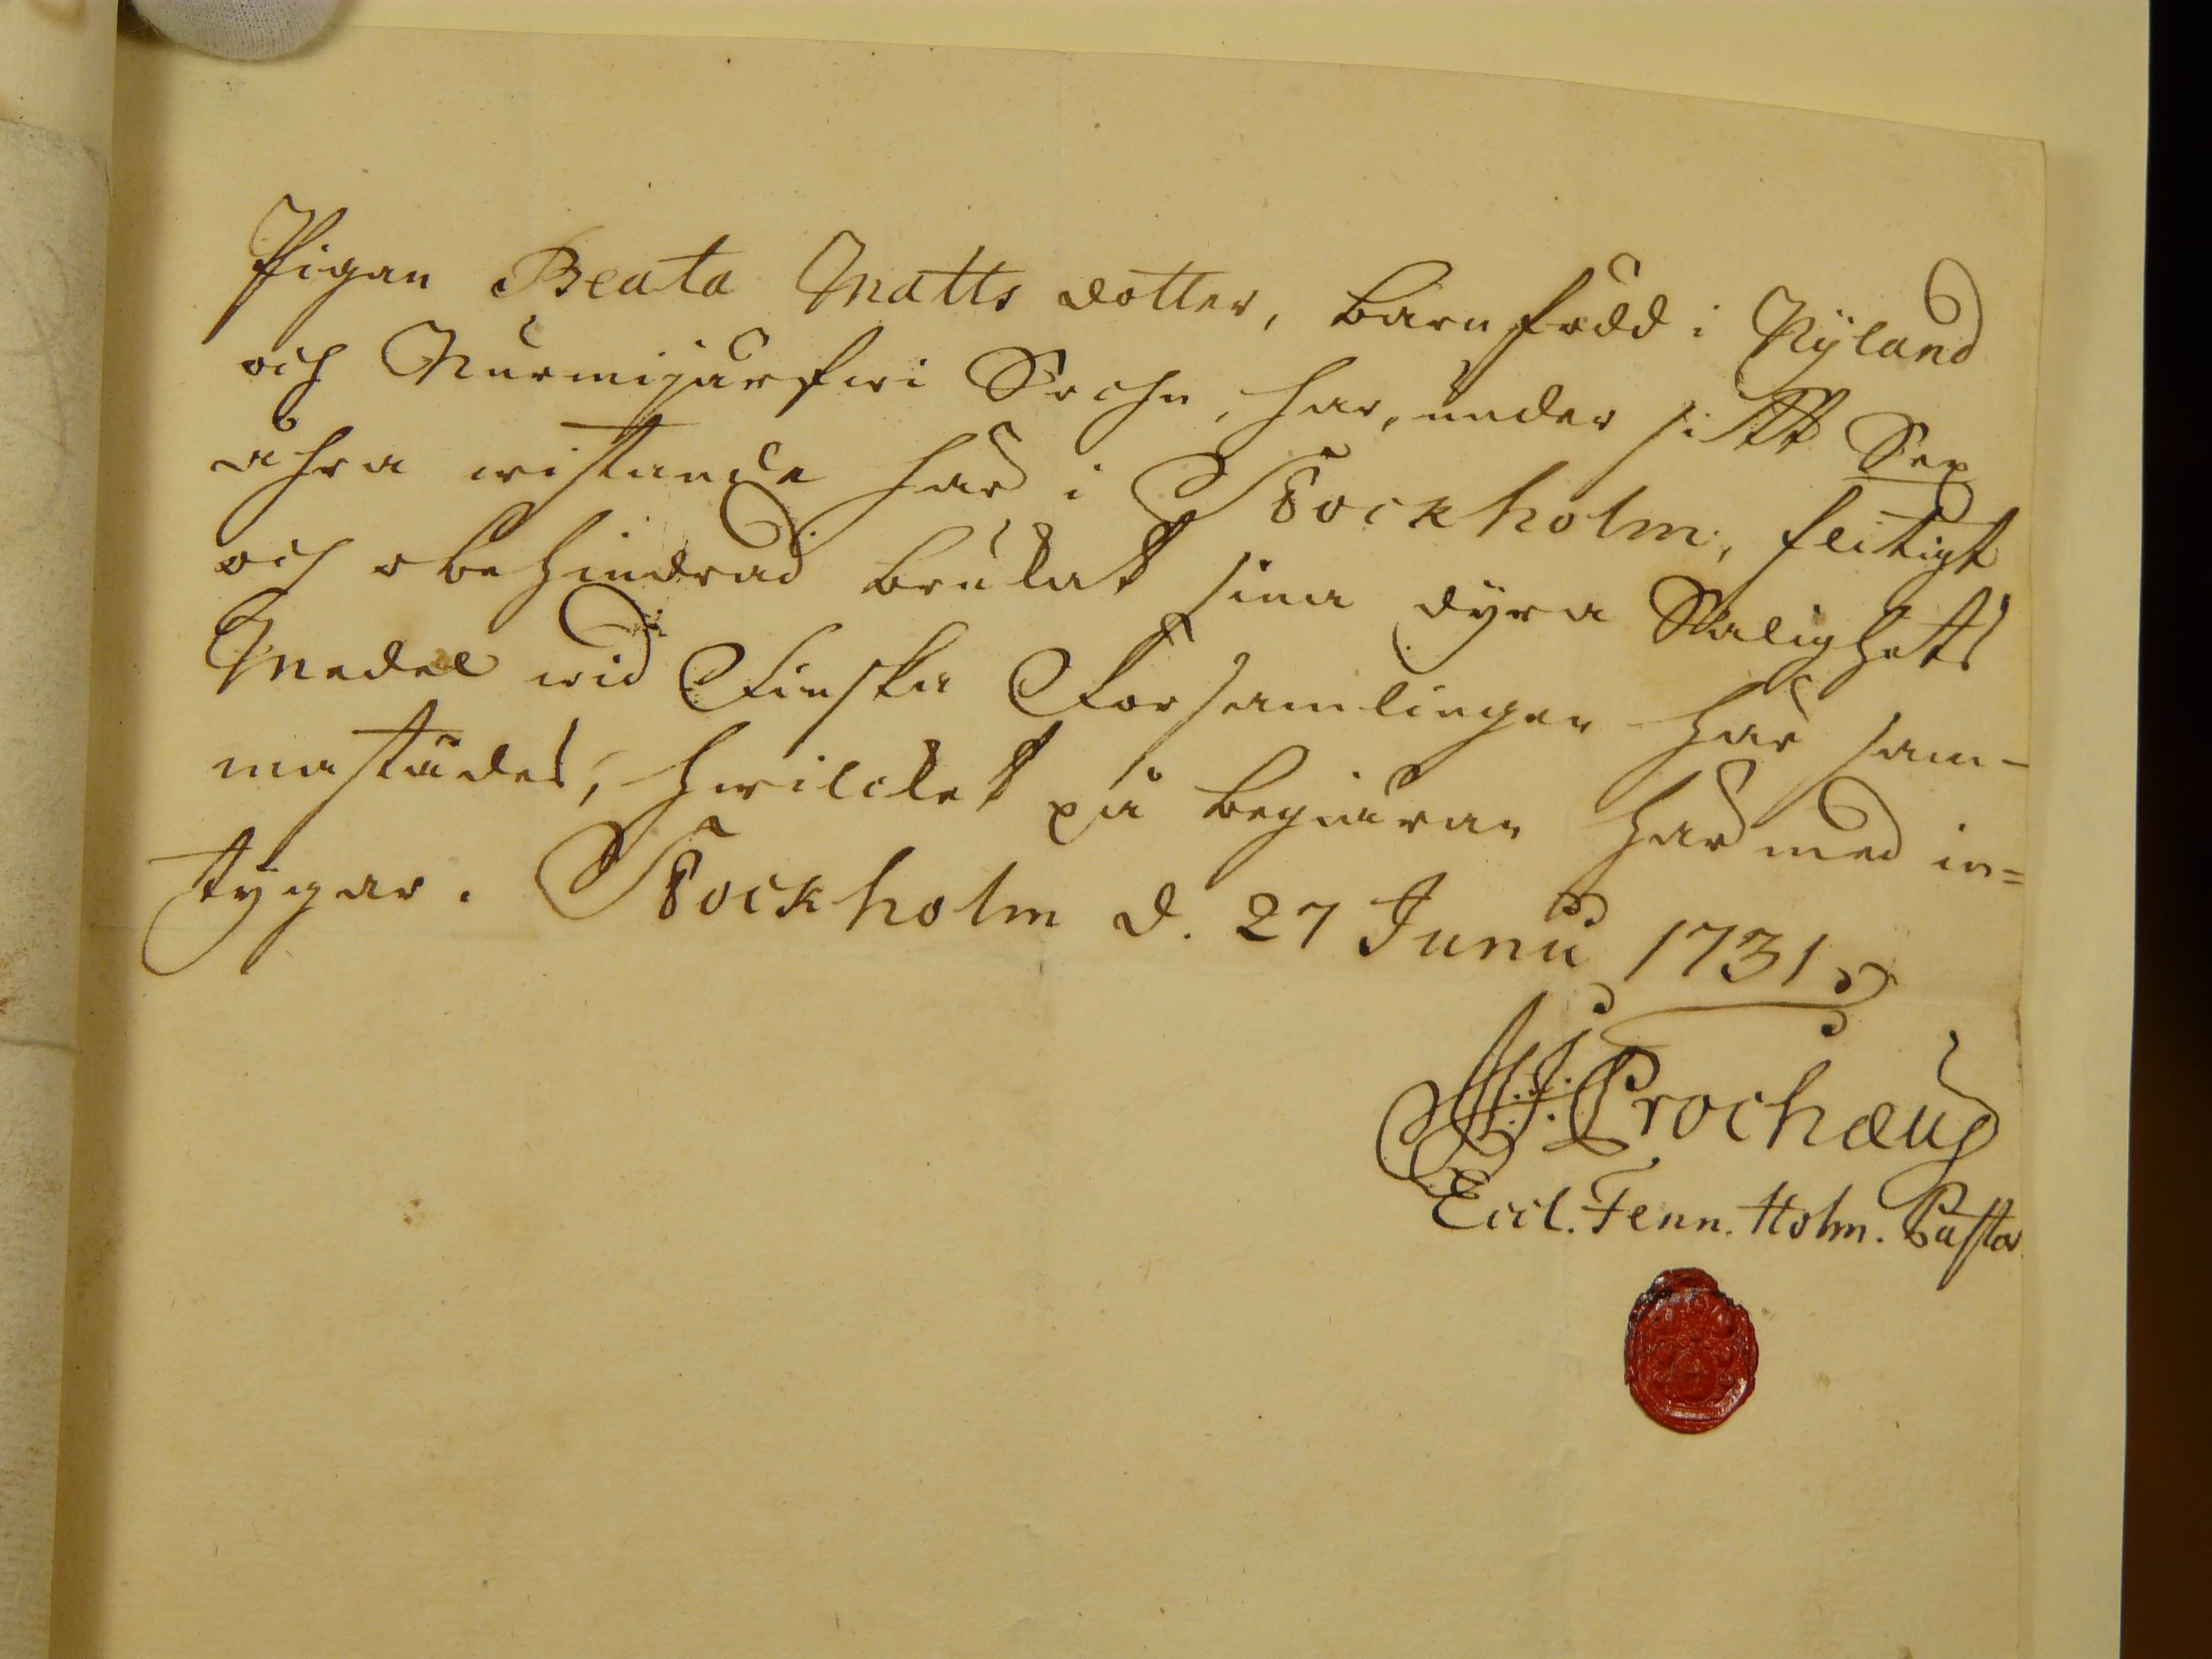 Pigan Beata Matts dotter, barnfödd i Nÿland
och Nurmijärfwi Sochn, har, under sitt Sex
åhra wistande här i Stockholm, flitigt
och obehindrad brukat sina dÿra Salighets
Medel wid Finska Församlingen här sam-
mastädes, hwilcket på begiäran här med in=
tÿgar. Stockholm d. 27 Junii 1731
Prochæus
Eccl. Fenn. Holm. Pastor